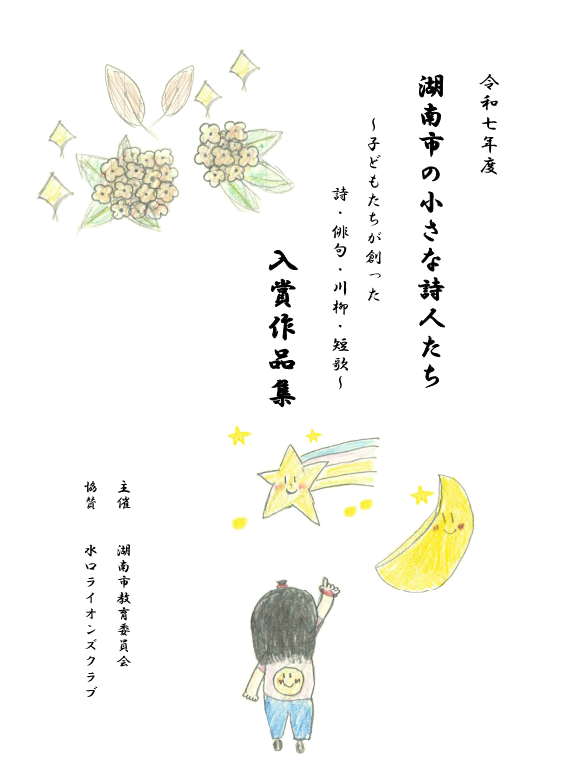 令和七年度
湖南市の小さな詩人たち
～子どもたちが創った
詩・俳句・川柳・短歌～
入賞作品集
主催　湖南市教育委員会
協賛　水口ライオンズクラブ